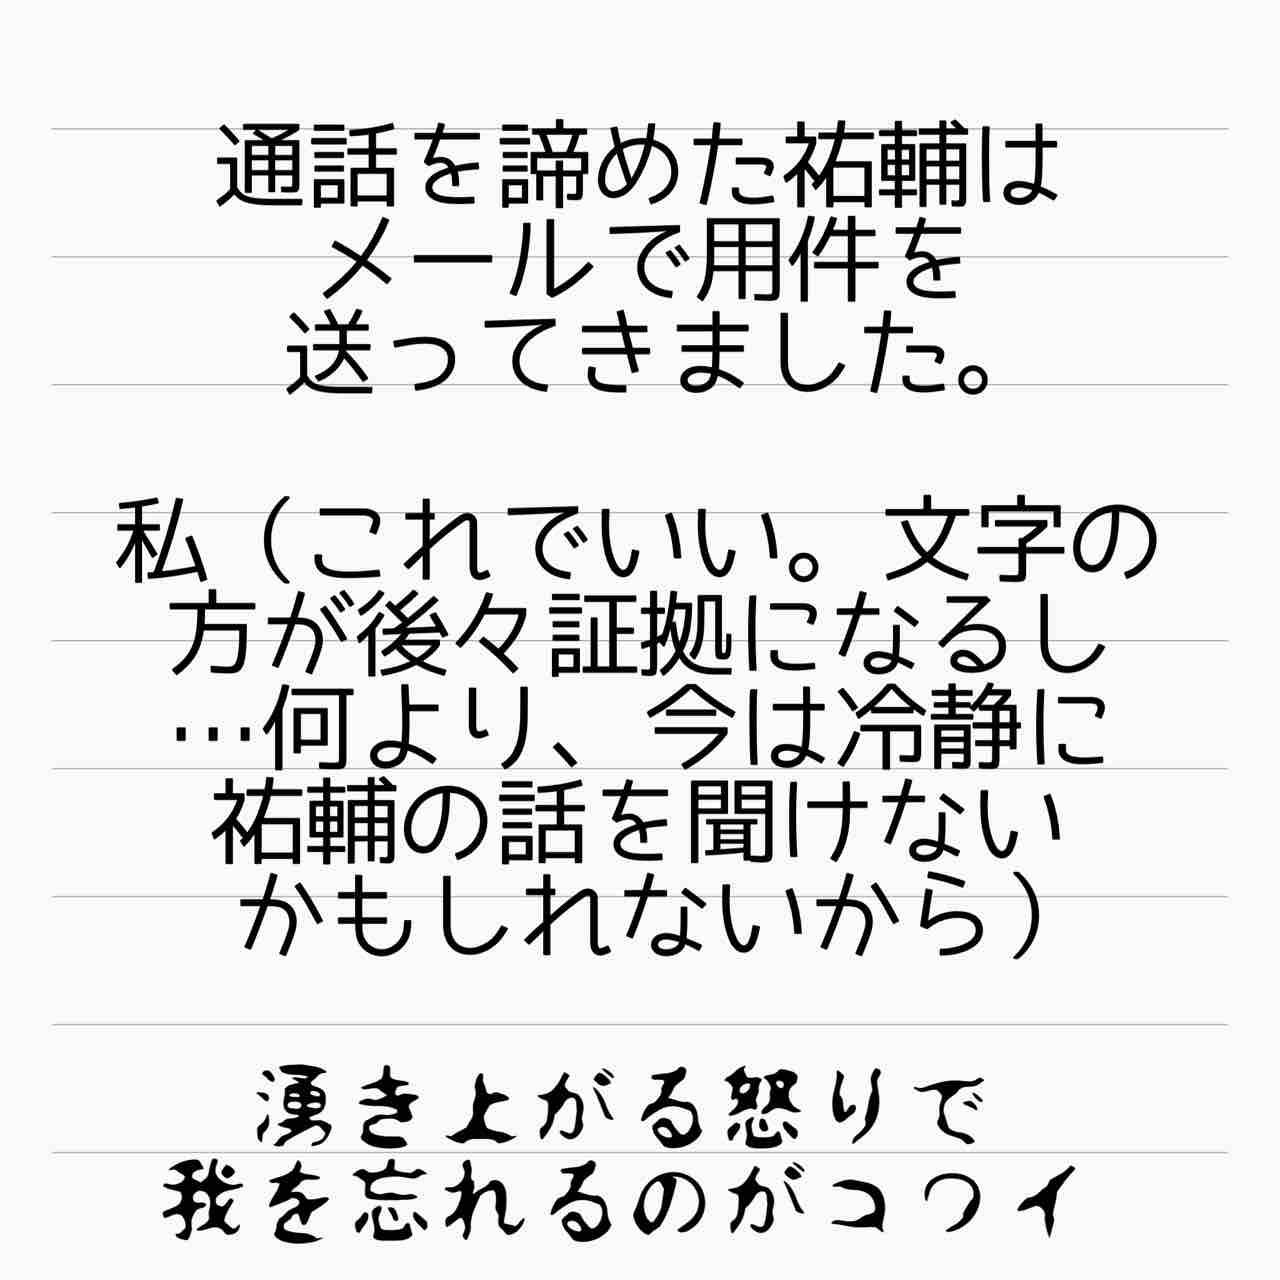 通話を諦めた祐輔は
メールで用件を
送ってきました。
私（これでいい。文字の
方が後々証拠になるし
…何より、今は冷静に
祐輔の話を聞けない
かもしれないから）
湧き上がる怒りで
我を忘れるのがコワイ